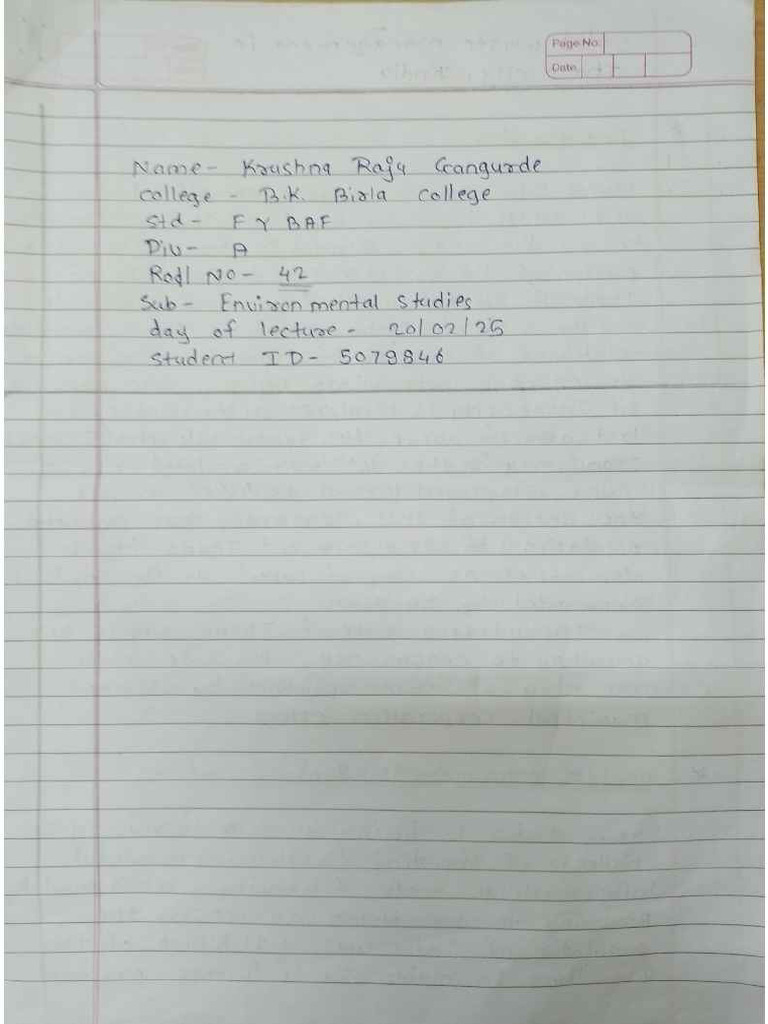 Page No.
Date
Name - Krushna Raju Gangurde
college - B.K. Birla college
Std - F Y BAF
Div - A
Roll NO - 42
Sub - Environmental Studies
day of lecture - 20/02/25
Student ID - 5079846